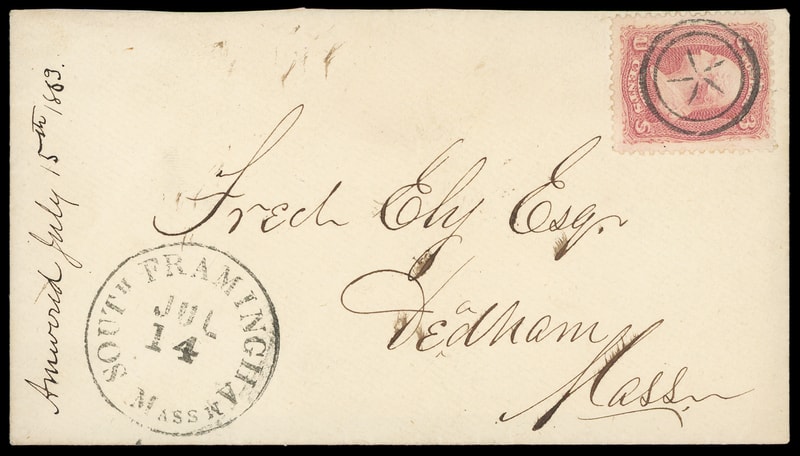 Answered July 15th 1863.
Fred Ely Esqr
Dedham
Mass
SOUTH FRAMINGHAM
JUL
14
MASS
U 3
3 CENTS S